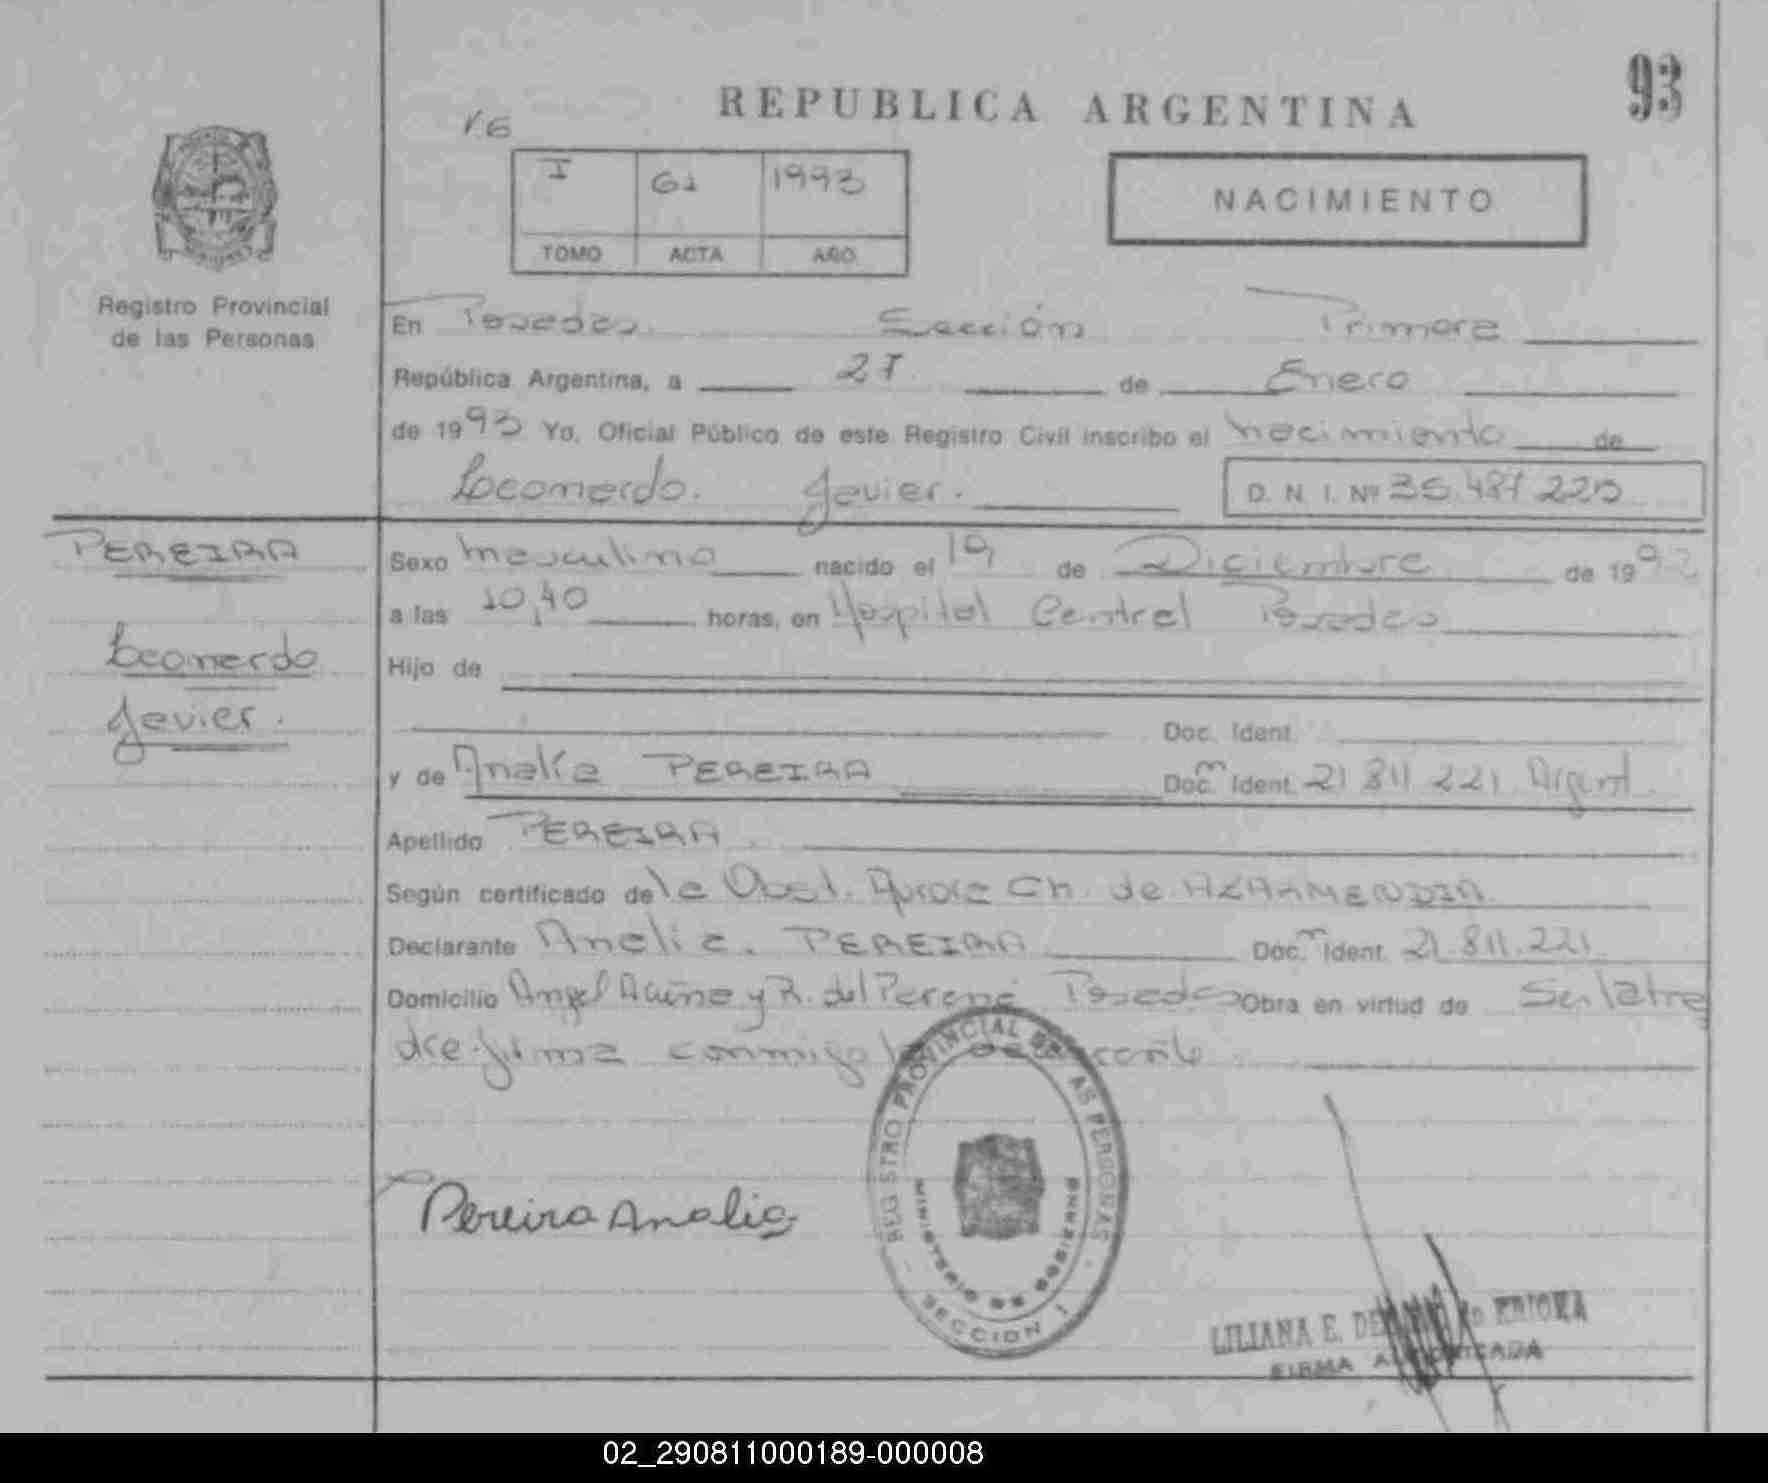 93
REPUBLICA ARGENTINA
I 61 1993
TOMO ACTA AÑO
NACIMIENTO
Registro Provincial
de las Personas
En Posadas. Sección Primera
República Argentina, a 27 de Enero
de 1993 Yo, Oficial Público de este Registro Civil inscribo el nacimiento de
Leonardo. Javier.
D. N. I. Nº
PEREIRA
Leonardo
Javier.
Sexo masculino nacido el 19 de Diciembre de 1992
a las 10,40 horas, en Hospital Central Posadas
Hijo de
Doc. Ident.
y de Analía PEREIRA Doc. Ident. 21 811 221 Argent.
Apellido PEREIRA.
Según certificado de la Obst. Aurora Ch. de AZARMENDIA
Declarante Analia. PEREIRA Doc. Ident. 21.811.221
Domicilio Angel Acuña y R. del Paraná Posadas Obra en virtud de Su letra
dre. firma conmigo
REGISTRO PROVINCIAL DE LAS PERSONAS
MINISTERIO DE GOBIERNO
SECCION 1
Pereira Analia
LILIANA E.
FIRMA AUTORIZADA
02_290811000189-000008